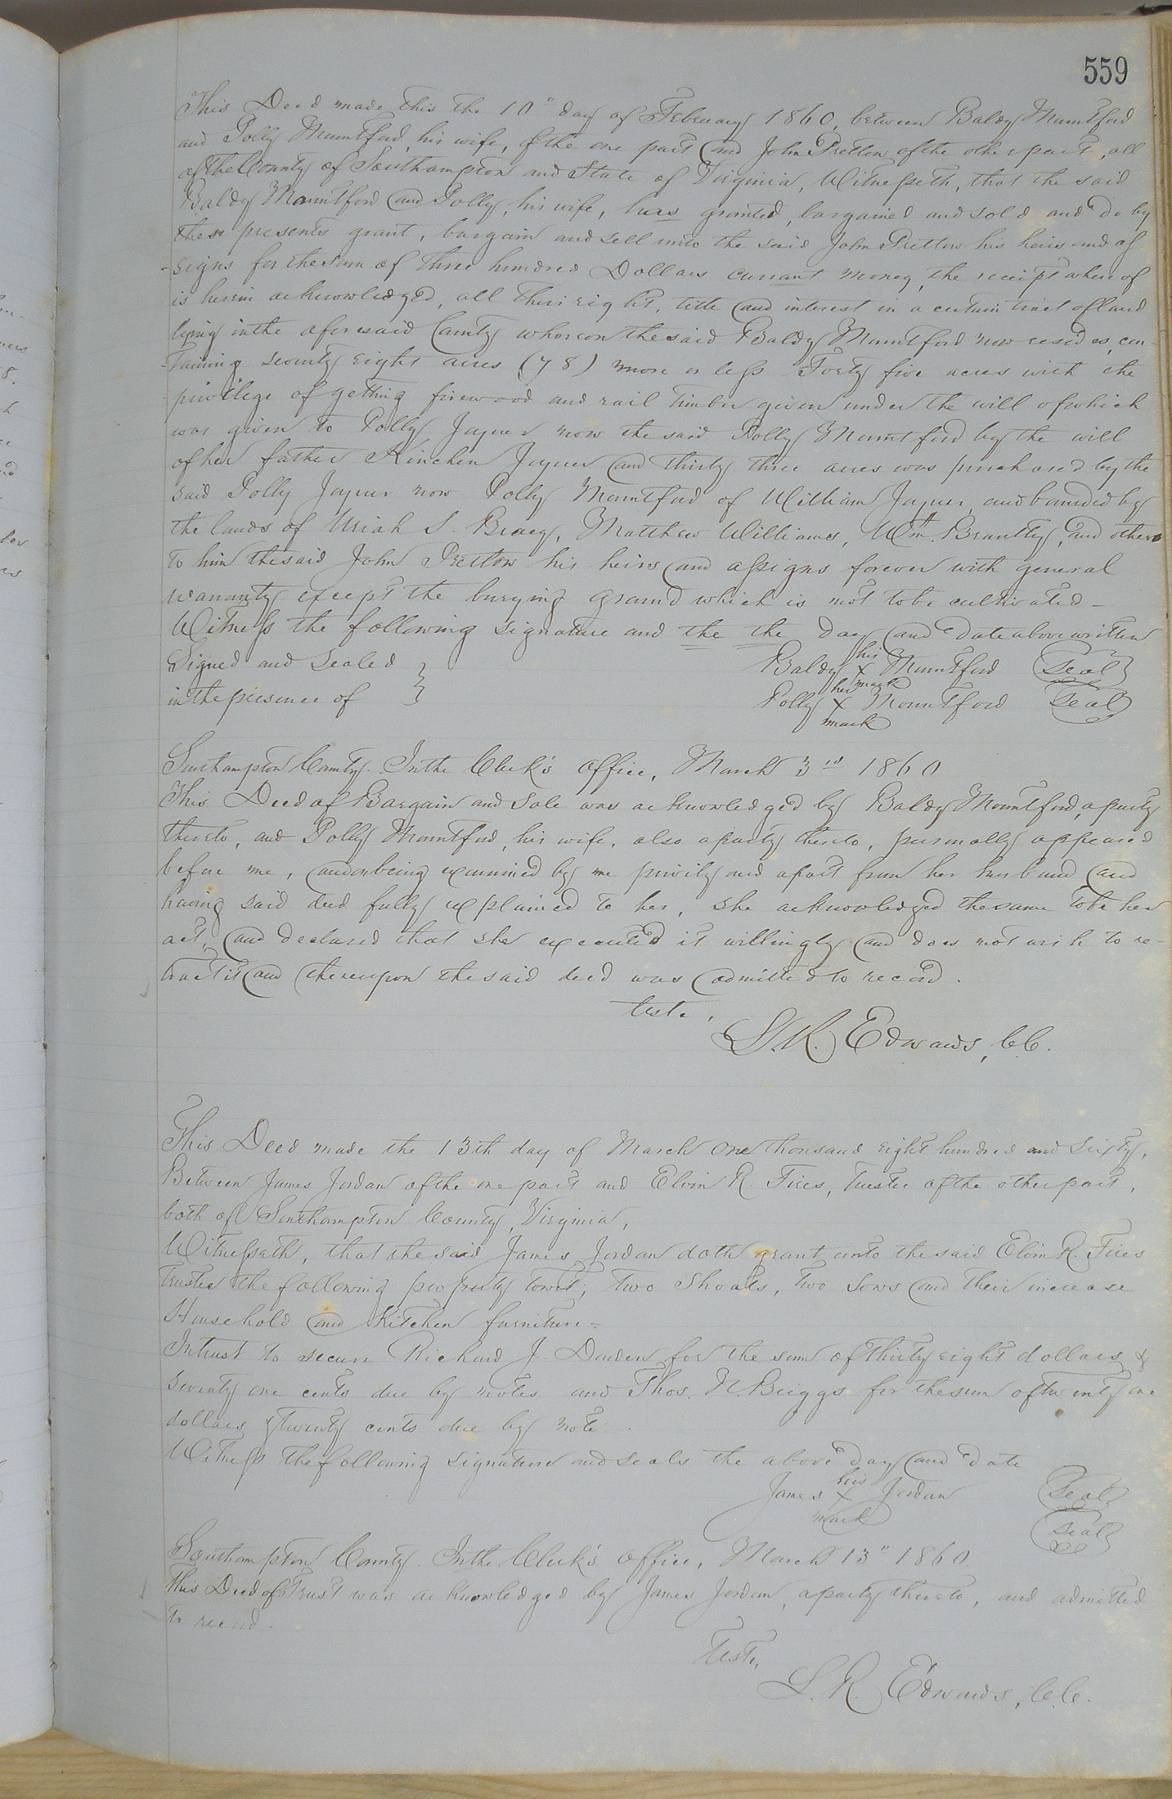 559
This Deed made this the 10" day of February 1860, between Baldy Mountford
and Polly Mountford, his wife, of the one part and John Pretlow of the other part, all
of the County of Southampton and State of Virginia, Witnesseth, that the said
Baldy Mountford and Polly, his wife, has granted, bargained and sold and do by
these presents grant, bargain and sell unto the said John Pretlow his heirs and as
-signs for the sum of three hundred Dollars currant money, the receipt where of
is herein acknowledged, all their right, title and interest in a certain tract of land
lying in the aforesaid County whereon the said Baldy Mountford now resides, con-
-taining seventy eight acres (78) more or less Forty five acres with the
privilege of getting firewood and rail timber given under the will of which
was given to Polly Joyner now the said Polly Mountford by the will
of her father Kinchen Joyner and thirty three acres was purchased by the
said Polly Joyner now Polly Mountford of William Joyner, and bounded by
the lands of Uriah S. Bracy, Matthew Williams, Wm. Brantly, and others
to him the said John Pretlow his heirs and assigns forever with general
warranty except the burying ground which is not to be cultivated -
Witness the following signature and the the day and date above written
Signed and Sealed } Baldy his x mark Mountford Seal
in the presence of } Polly her x mark Mountford Seal
Southampton County. In the Clerk's office, March 3rd 1860
This Deed of Bargain and Sale was acknowledged by Baldy Mountford, a party
thereto, and Polly Mountford, his wife, also a party thereto, personally appeared
before me, and being examined by me privily and apart from her husband and
having said deed fully explained to her, she acknowledged the same to be her
act, and declared that she executed it willingly and does not wish to re-
tract it and thereupon the said deed was admitted to record.
Teste,
L. R. Edwards, C.C.
This Deed made the 13th day of March one thousand eight hundred and sixty,
Between James Jordan of the one part and Elvin R. Fires, Trustee of the other part,
both of Southampton County, Virginia,
Witnesseth, that the said James Jordan doth grant unto the said Elvin R. Fires
Trustee the following property towit; Two Shoats, Two Sows and their increase
Household and Kitchen furniture =
In trust to secure Richard J. Darden for the sum of thirty eight dollars &
seventy one cents due by notes and Thos. N Briggs for the sum of twenty one
dollars & twenty cents due by note.
Witness the following signature and seals the above day and date
James his x mark Jordan Seal
Seal
Southampton County. In the Clerk's office, March 13" 1860.
This Deed of Trust was acknowledged by James Jordan, a party thereto, and admitted
to record.
Teste,
L. R. Edwards, C.C.